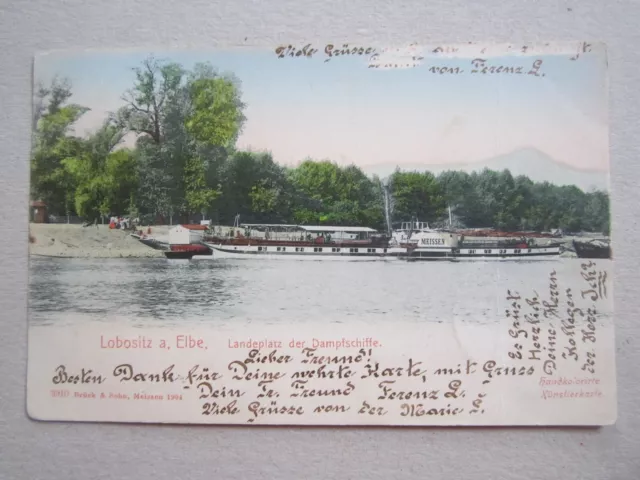 Viele Grüsse
von Ferenz L.
MEISSEN
Lobositz a. Elbe. Landeplatz der Dampfschiffe.
Lieber Freund!
Besten Dank für Deine wehrte Karte, mit Gruss
Dein Tr. Freund Ferenz L.
Viele Grüsse von der Marie L.
Brück & Sohn, Meissen
Es Grüst
Herzlich
Deine Herrn
Kollegen
der
Handkolorierte
Künstlerkarte.